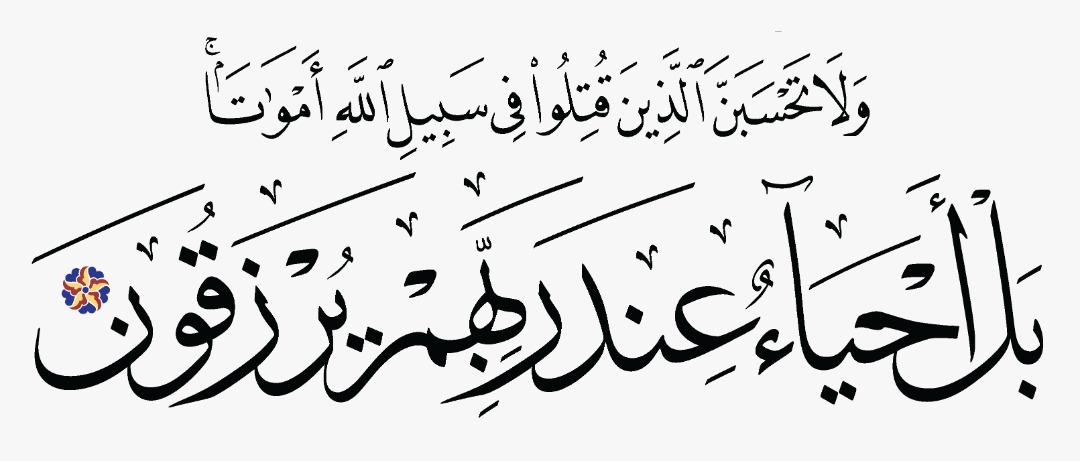 وَلَا تَحْسَبَنَّ ٱلَّذِينَ قُتِلُوا۟ فِى سَبِيلِ ٱللَّهِ أَمْوَٰتَۢا ۚ
بَلْ أَحْيَآءٌ عِندَ رَبِّهِمْ يُرْزَقُونَ